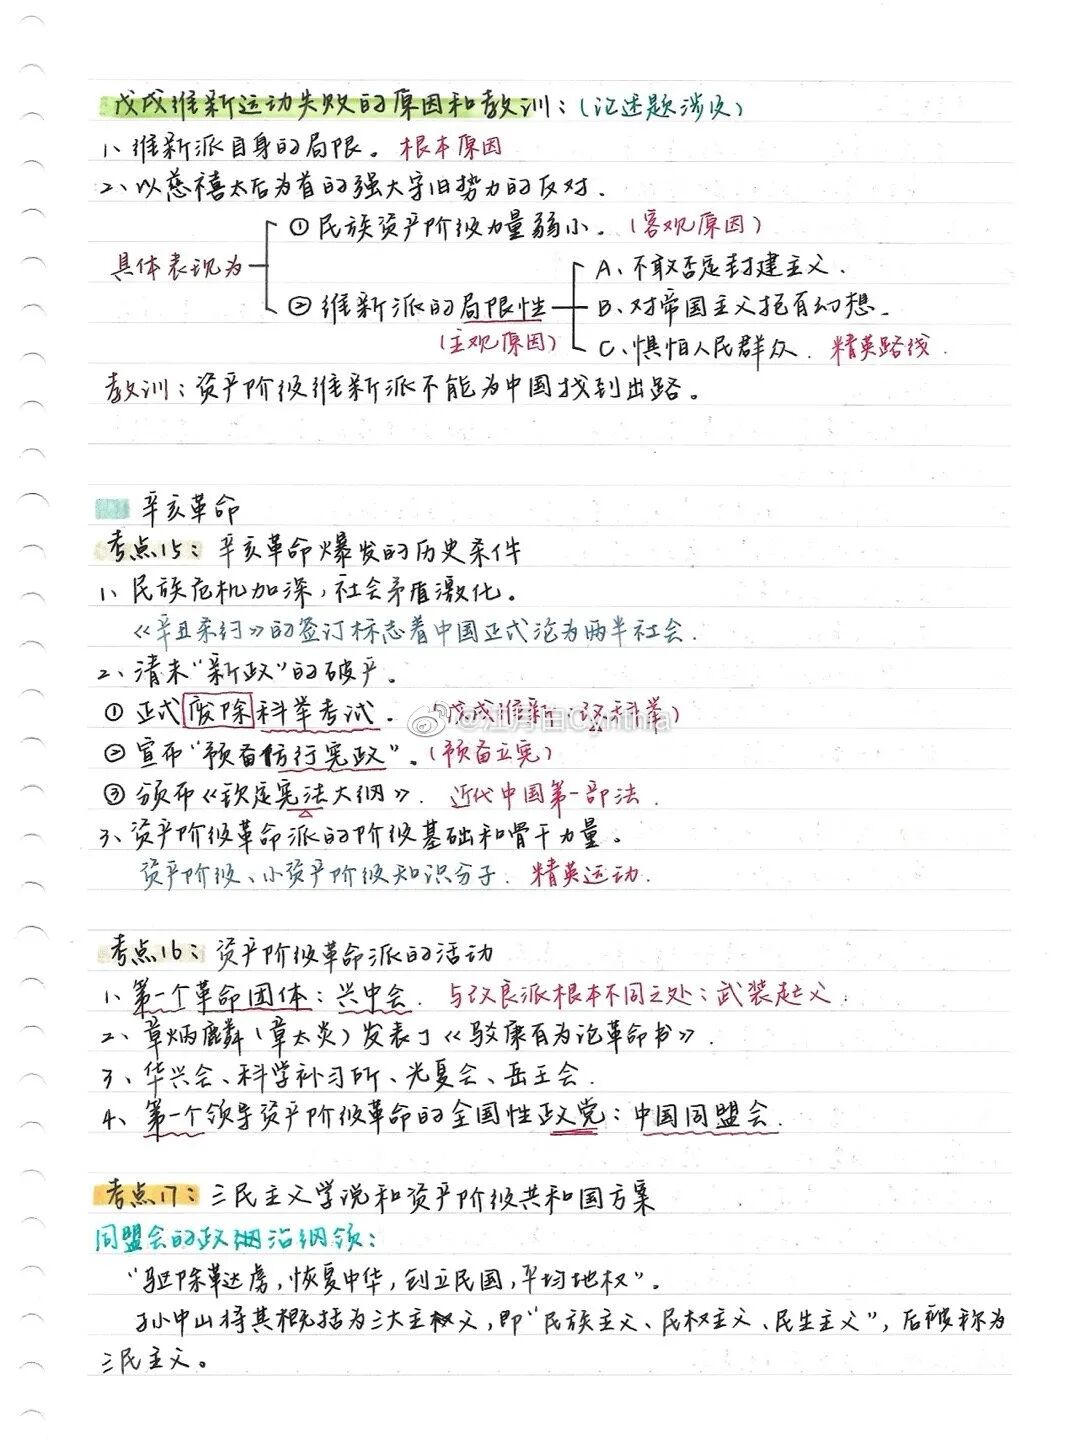 戊戌维新运动失败的原因和教训：（论述题涉及）
1、维新派自身的局限。根本原因
2、以慈禧太后为首的强大守旧势力的反对.
① 民族资产阶级力量弱小.（客观原因）
具体表现为
A、不敢否定封建主义.
② 维新派的局限性
B、对帝国主义抱有幻想.
（主观原因）
C、惧怕人民群众. 精英路线.
教训：资产阶级维新派不能为中国找到出路。
辛亥革命
考点15：辛亥革命爆发的历史条件
1、民族危机加深，社会矛盾激化。
《辛丑条约》的签订标志着中国正式沦为两半社会.
2、清末“新政”的破产.
① 正式废除科举考试. 戊戌维新：改科举）
@江月白Cynthia
② 宣布“预备仿行宪政”.（预备立宪）
③ 颁布《钦定宪法大纲》. 近代中国第一部法.
3、资产阶级革命派的阶级基础和骨干力量。
资产阶级、小资产阶级知识分子. 精英运动.
考点16：资产阶级革命派的活动
1、第一个革命团体：兴中会. 与改良派根本不同之处：武装起义.
2、章炳麟（章太炎）发表了《驳康有为论革命书》.
3、华兴会、科学补习所、光复会、岳王会.
4、第一个领导资产阶级革命的全国性政党：中国同盟会.
考点17：三民主义学说和资产阶级共和国方案
同盟会的政治纲领：
“驱除鞑虏，恢复中华，创立民国，平均地权”.
孙中山将其概括为三大主义，即“民族主义、民权主义、民生主义”，后被称为
三民主义。